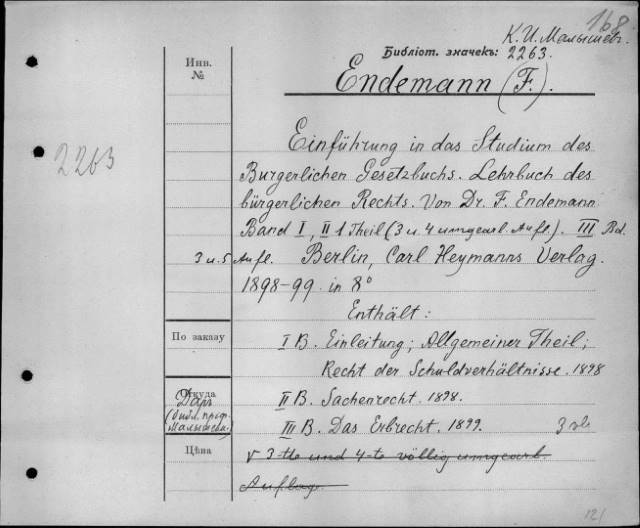 168
К. И. Малышев.
Библіот. значекъ: 2263.
Endemann (F.).
Инв.
№
2263
Einführung in das Studium des
Burgerlichen Gesetzbuchs. Lehrbuch des
bürgerlichen Rechts. Von Dr. F. Endemann
Band I, II 1 Theil (3 u. 4 umgearb. Aufl.). III Bd.
3 u. 5 Aufl. Berlin, Carl Heymanns Verlag.
1898-99. in 8°
Enthält:
По заказу
I B. Einleitung; Allgemeiner Theil;
Recht der Schuldverhältnisse. 1898
Откуда
Даръ
(библ. проф.
Малышева)
II B. Sachenrecht. 1898.
III B. Das Erbrecht. 1899.
Цѣна
3-tte und 4-te völlig umgearb.
Auflage
121